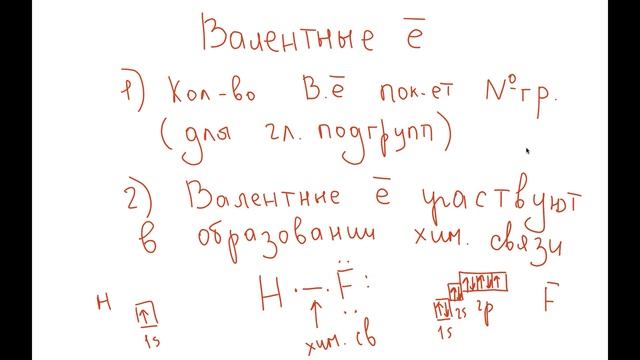 Валентные ē
1) Кол-во В.ē пок-ет №гр.
(для гл. подгрупп)
2) Валентные ē участвуют
в образовании хим. связи
H 1s
H · – F
хим. св
1s 2s 2p F